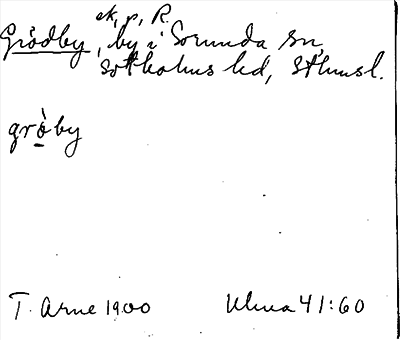 ek, p, R
Grödby, by i Sorunda sn,
Sotholms hd, Sthmsl.
grò̲by
T. Arne 1900 Ulma 41:60